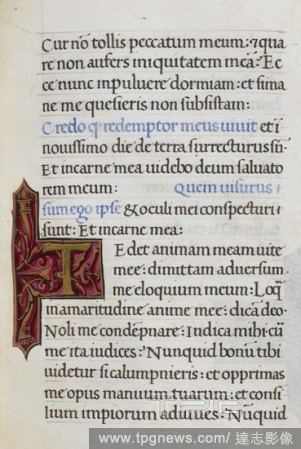 Cur no tollis peccatum meum: ⁊ qua
re non aufers iniquitatem meã? Ec
ce nunc inpuluere dormiam: et sima
ne me quesieris non subsistam:
Credo ꝙ redemptor meus uiuit et i
nouissimo die de terra surrecturus sũ.
Et incarne mea uidebo deum saluato
rem meum: Quem uisurus
sum ego ipse & oculi mei conspecturi
sunt: Et incarne mea:
Tedet animam meam uite
mee: dimittam aduersum
me eloquium meum: Loq̃
inamaritudine anime mee: dicã deo
Noli me condẽpnare: Indica mihi cũ
me ita iudices: Nunquid bonũ tibi
uidetur si calumpnieris: et opprimas
me opus manuum tuarum: et consi
lium impiorum adiuues: Nũquid
www.tpgnews.com / 達志影像